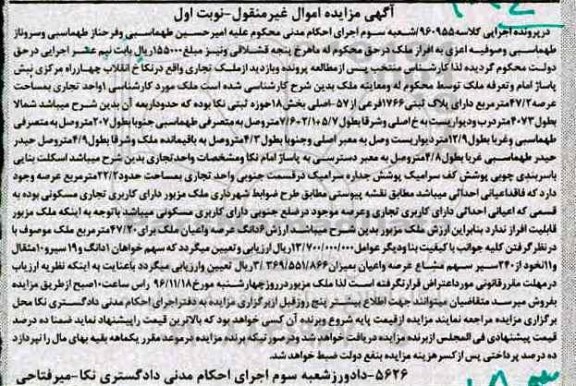 آگهی مزایده اموال غیرمنقول-نوبت اول
درپرونده اجرایی کلاسه ۹۶۰۹۵۵/شعبه سوم اجرای احکام مدنی محکوم علیه امیرحسین طهماسبی وفرحناز طهماسبی وسروناز
طهماسبی وصوفیه اعزی به افراز ملک درحق محکوم له ماهرخ پنجه قشلاقی ونیز مبلغ ۱۵۵۰۰۰ریال بابت نیم عشر اجرایی در حق
دولت محکوم گردیده لذا کارشناس منتخب پس از مطالعه پرونده وبازدید ازملک تجاری واقع درنکا خ انقلاب چهارراه مرکزی نبش
پاساژ امام وتعرفه ملک توسط محکوم له ومعاینه ملک بدین شرح کارشناسی شده است ملک مورد کارشناسی ۱واحد تجاری بمساحت
عرصه ۴۷/۲مترمربع دارای پلاک ثبتی ۱۷۶۶فرعی از ۵۷-اصلی بخش ۱۸حوزه ثبتی نکا بوده که حدوداربعه آن بدین شرح میباشد شمالا
بطول ۴۰۷۳متردرب ودیواریست به خ اصلی وشرقا بطول ۷/۶۰۲/۱۰۵/۷متروصل به متصرفی طهماسبی جنوبا بطول ۲۰۷متروصل به متصرفی
طهماسبی وغربا بطول ۱۲/۹متردیواریست وصل به معبر اصلی وجنوبا بطول ۴/۳متروصل به باقیمانده ملک وشرقا بطول ۴/۹متروصل حیدر
حیدر طهماسبی غربا بطول ۴/۸متروصل به معبر دسترسی به پاساژ امام نکا ومشخصات واحدتجاری بدین شرح میباشد اسکلت بنایی
باسربندی چوبی پوشش کف سرامیک پوشش جداره سرامیک درقسمت جنوبی واحد تجاری بمساحت حدود۲۲/۲مترمربع عرصه وجود
دارد که فاقداعیانی احداثی میباشد مطابق نقشه پیوستی مطابق طرح ضوابط شهرداری ملک مزبور دارای کاربری تجاری مسکونی بوده به
قسمی که اعیانی احداثی دارای کاربری تجاری وعرصه موجود درضلع جنوبی دارای کاربری مسکونی میباشد باتوجه به اینکه ملک مزبور
قابلیت افراز ندارد بنابراین ارزش ملک مزبور بدین شرح میباشد ارزش ۶دانگ عرصه واعیان ملک برای ۴۷/۲۰مترمربع ملک موصوف با
در نظرگرفتن کلیه جوانب با کیفیت بنا ودیگر عوامل ۱۳/۷۰۰/۰۰۰/۰۰۰ریال ارزیابی و تعیین میگردد که سهم خواهان ۱دانگ و۱۹ سیرو۱۰مثقال
و۱۱نخود از ۲۴۰سیر سهم مشاع عرصه واعیان بمیزان ۳/۳۶۹/۵۵۱/۸۶۶ریال تعیین وارزیابی میگردد باعنایت به اینکه نظریه ارزیاب
درمهلت مقررقانونی مورداعتراض قرارنگرفته است لذا ملک مزبوردرروزچهارشنبه مورخ ۹۶/۱۱/۱۸ راس ساعت ۱۰صبح ازطریق مزایده
بفروش میرسد متقاضیان میتوانند جهت اطلاع بیشتر پنج روز قبل ازبرگزاری مزایده به دفتراجرای احکام مدنی دادگستری نکا محل
برگزاری مزایده مراجعه نمایند مزایده ازقیمت پایه شروع وبرنده آن کسی خواهد بود که بالاترین قیمت راپیشنهاد نماید ضمنا ده درصد
قیمت پیشنهادی فی المجلس ازبرنده مزایده دریافت خواهد شد ودر صور تیکه برنده مزایده درموعد مقرر یکماهه بقیه بهای مال را نپردازد
ده درصد پرداختی پس ازکسر هزینه مزایده بنفع دولت ضبط خواهد شد.
۵۶۲۶-دادورزشعبه سوم اجرای احکام مدنی دادگستری نکا-میرفتاحی